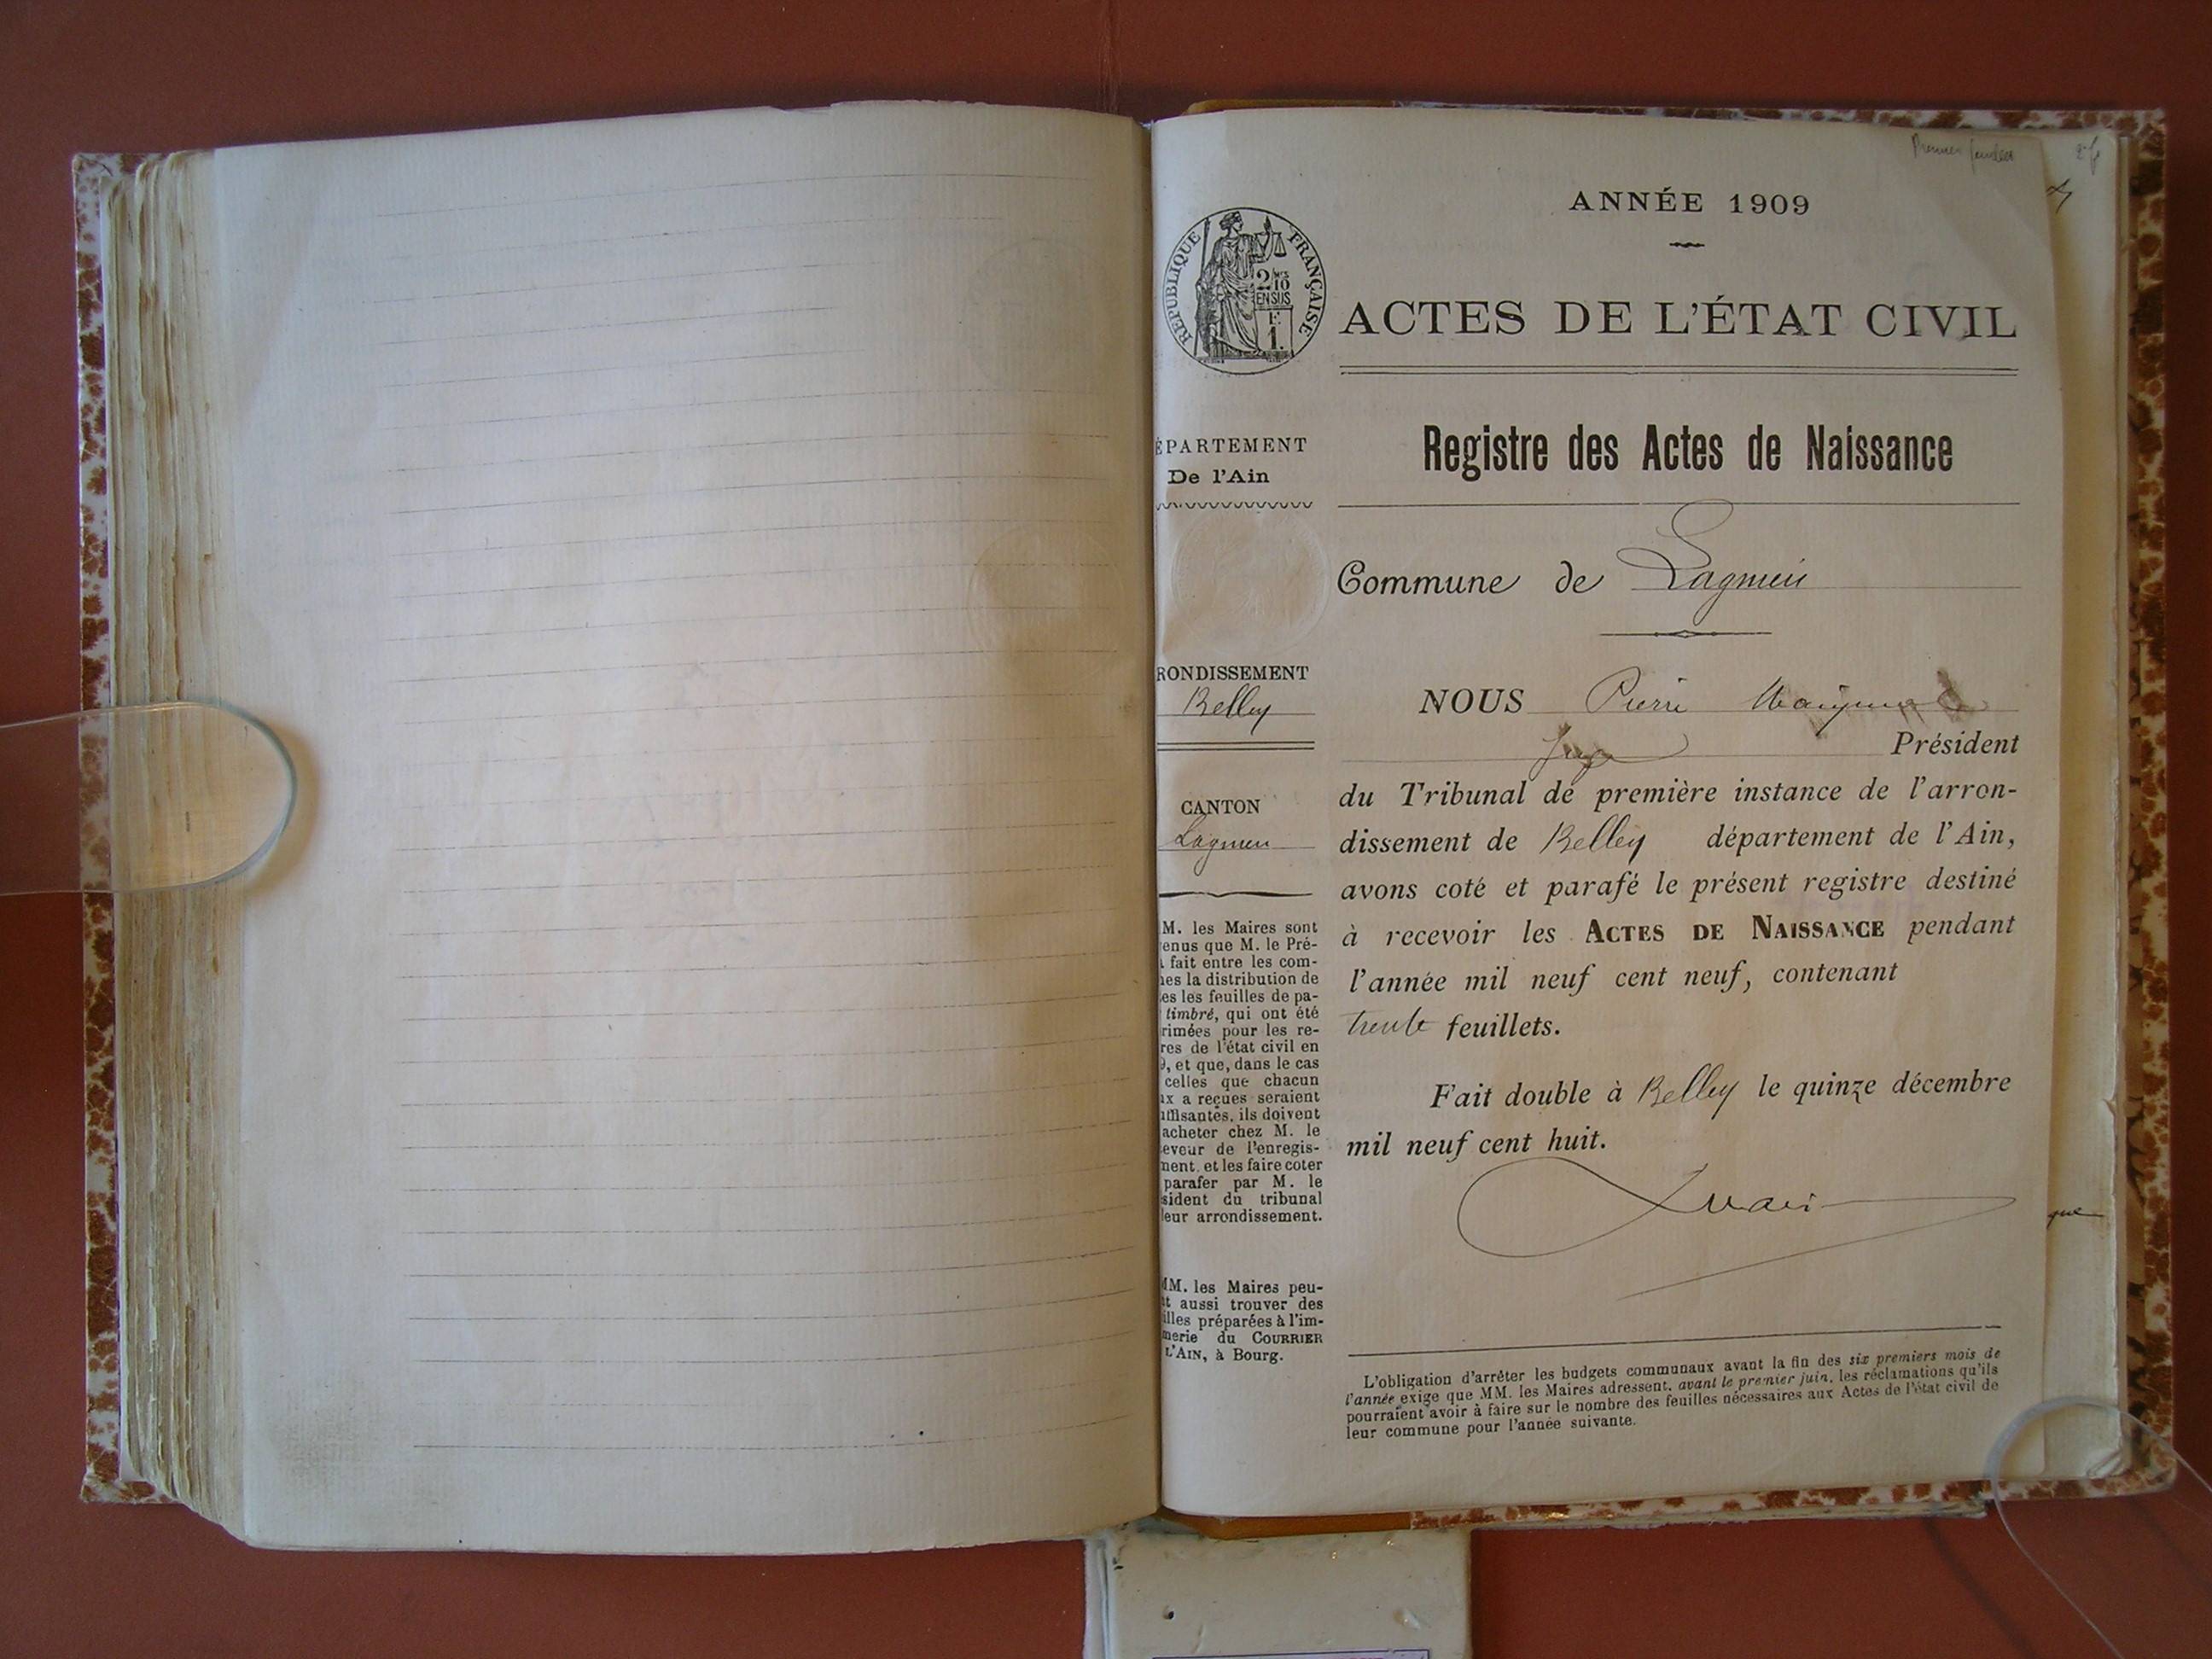 Premier feuillet
2e f
ANNÉE 1909
RÉPUBLIQUE FRANÇAISE
2/10
EN SUS
F.
1.
ACTES DE L'ÉTAT CIVIL
Registre des Actes de Naissance
Commune de Lagnieu
NOUS Pierre
Juge Président
du Tribunal de première instance de l'arron-
dissement de Belley département de l'Ain,
avons coté et parafé le présent registre destiné
à recevoir les ACTES DE NAISSANCE pendant
l'année mil neuf cent neuf, contenant
trente feuillets.
Fait double à Belley le quinze décembre
mil neuf cent huit.
L'obligation d'arrêter les budgets communaux avant la fin des six premiers mois de
l'année exige que MM. les Maires adressent, avant le premier juin, les réclamations qu'ils
pourraient avoir à faire sur le nombre des feuilles nécessaires aux Actes de l'état civil de
leur commune pour l'année suivante.
ÉPARTEMENT
De l'Ain
RONDISSEMENT
Belley
CANTON
Lagnieu
M. les Maires sont
enus que M. le Pré-
fait entre les com-
nes la distribution de
es les feuilles de pa-
timbré, qui ont été
rimées pour les re-
res de l'état civil en
9, et que, dans le cas
celles que chacun
ux a reçues seraient
uffisantes, ils doivent
acheter chez M. le
eveur de l'enregis-
ment, et les faire coter
parafer par M. le
sident du tribunal
leur arrondissement.
MM. les Maires peu-
t aussi trouver des
illes préparées à l'im-
merie du COURRIER
L'AIN, à Bourg.
que